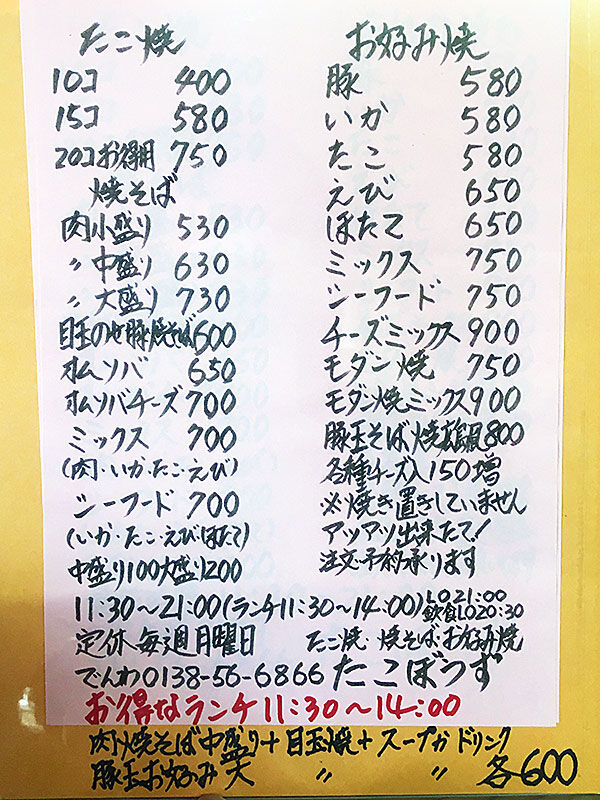 たこ焼
10コ 400
15コ 580
20コお得用 750
焼そば
肉小盛り 530
〃中盛り 630
〃大盛り 730
目玉のせ豚焼そば600
オムソバ 650
オムソバチーズ 700
ミックス 700
(肉・いか・たこ・えび)
シーフード 700
(いか・たこ・えびほたて)
中盛り100大盛り200
お好み焼
豚 580
いか 580
たこ 580
えび 650
ほたて 650
ミックス 750
シーフード 750
チーズミックス 900
モダン焼 750
モダン焼ミックス900
豚玉そば焼 800
各種チーズ入150増
※焼き置きしていません
アツアツ出来たて!
注文・予約承ります
11:30〜21:00(ランチ11:30〜14:00)LO.21:00
飲食LO20:30
定休 毎週月曜日 たこ焼・焼そば・お好み焼
でんわ0138-56-6866 たこぼうず
お得なランチ11:30〜14:00
肉焼そば中盛り+目玉焼+スープかドリンク
豚玉お好み大 〃 〃 各600